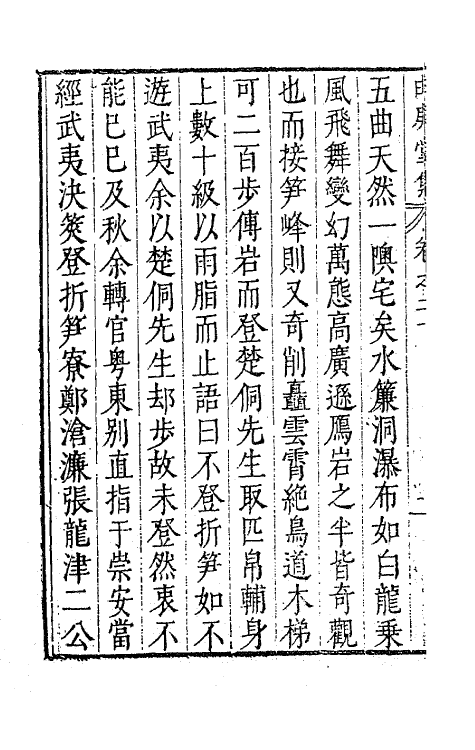 五曲天然一隩宅矣水簾洞瀑布如白龍乗
風飛舞變幻萬態高廣遜鴈岩之半皆奇觀
也而接笋峰則又奇削矗雲霄絶鳥道木梯
可二百步傳岩而登楚侗先生取匹帛輔身
上數十級以雨脂而止語曰不登折笋如不
遊武夷余以楚侗先生却步故未登然衷不
能已巳及秋余轉官粤東别直指于崇安當
經武夷決筴登折笋寮鄭滄濂張龍津二公